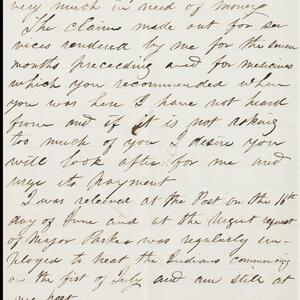 very much in need of money
The claim made out for ser
vices rendered by me for the seven
months preceeding and for medicines
which you recommended when
you was here I have not heard
from and if it is not asking
too much of you I desire you
will look after for me and
urge its payment
I was relieved at the Post on the 16th
day of June and at the urgent request
of Major Parker was regularly em-
ployed to treat the Indians commencing
on the first of July and am still at
my post